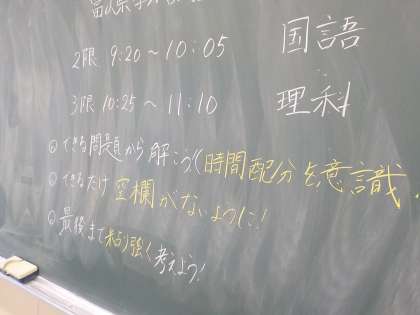 2限 9:20～10:05 国語
3限 10:25～11:10 理科
できる問題から解こう(時間配分を意識
できるだけ空欄がないように!
最後まで粘り強く考えよう!